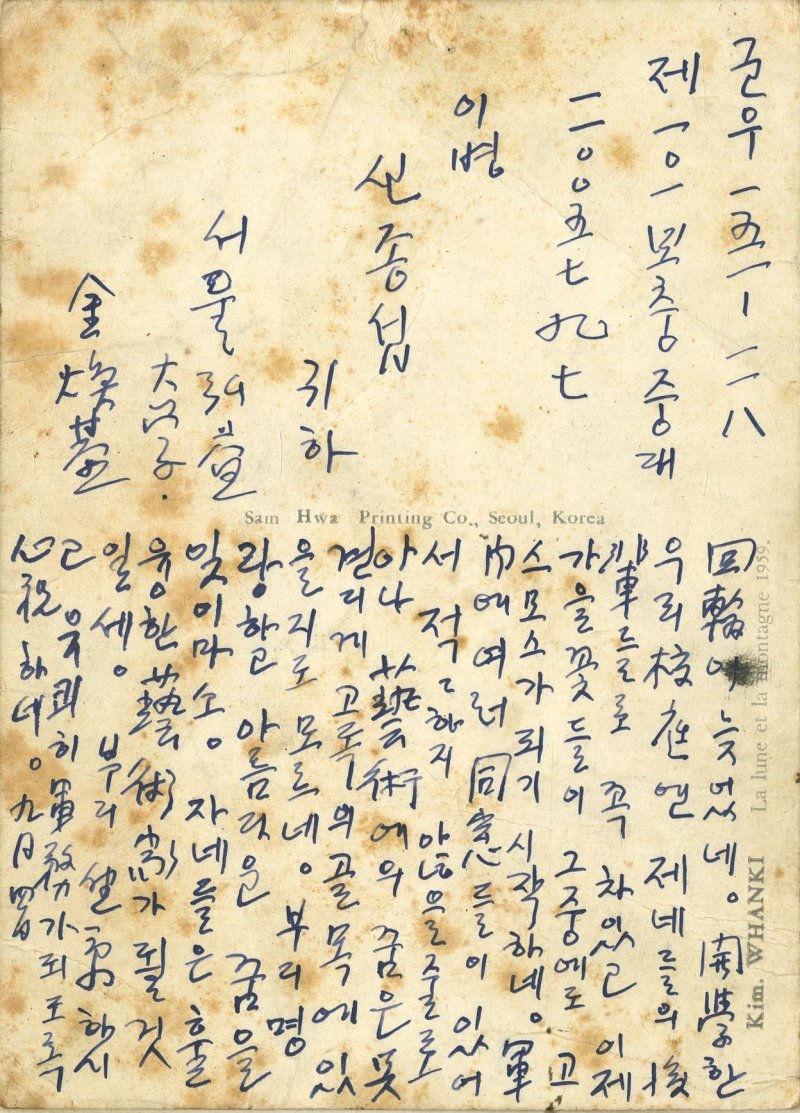 군우 一五一ー二八
제一〇一 보충중대
二〇〇五七九七
이병
신종섭
귀하
서울 弘益
大学.
金煥基
Sam Hwa Printing Co., Seoul, Korea
回輪이 늦었네。 開學한
우리校庭엔 제네들의 後
輩들로 꼭 차있고 이제
가을꽃들이 그중에도 고
스모스가 피기 시작하네。 軍
內에 여러 同窓들이 있어
서 적적하지 않을줄로
아나 藝術에의 꿈은 못
견디게 고독의골목에 있
을지도 모르네。 부디 명
랑하고 아름다운 꿈을
잊이마소。 자네들은 훌
륭한 藝術家가 될 것
일세。 부디 하시
고 유쾌히 軍務가되도록
心祝하네。 九月四日
Kim. WHANKI La lune et la montagne 1959.